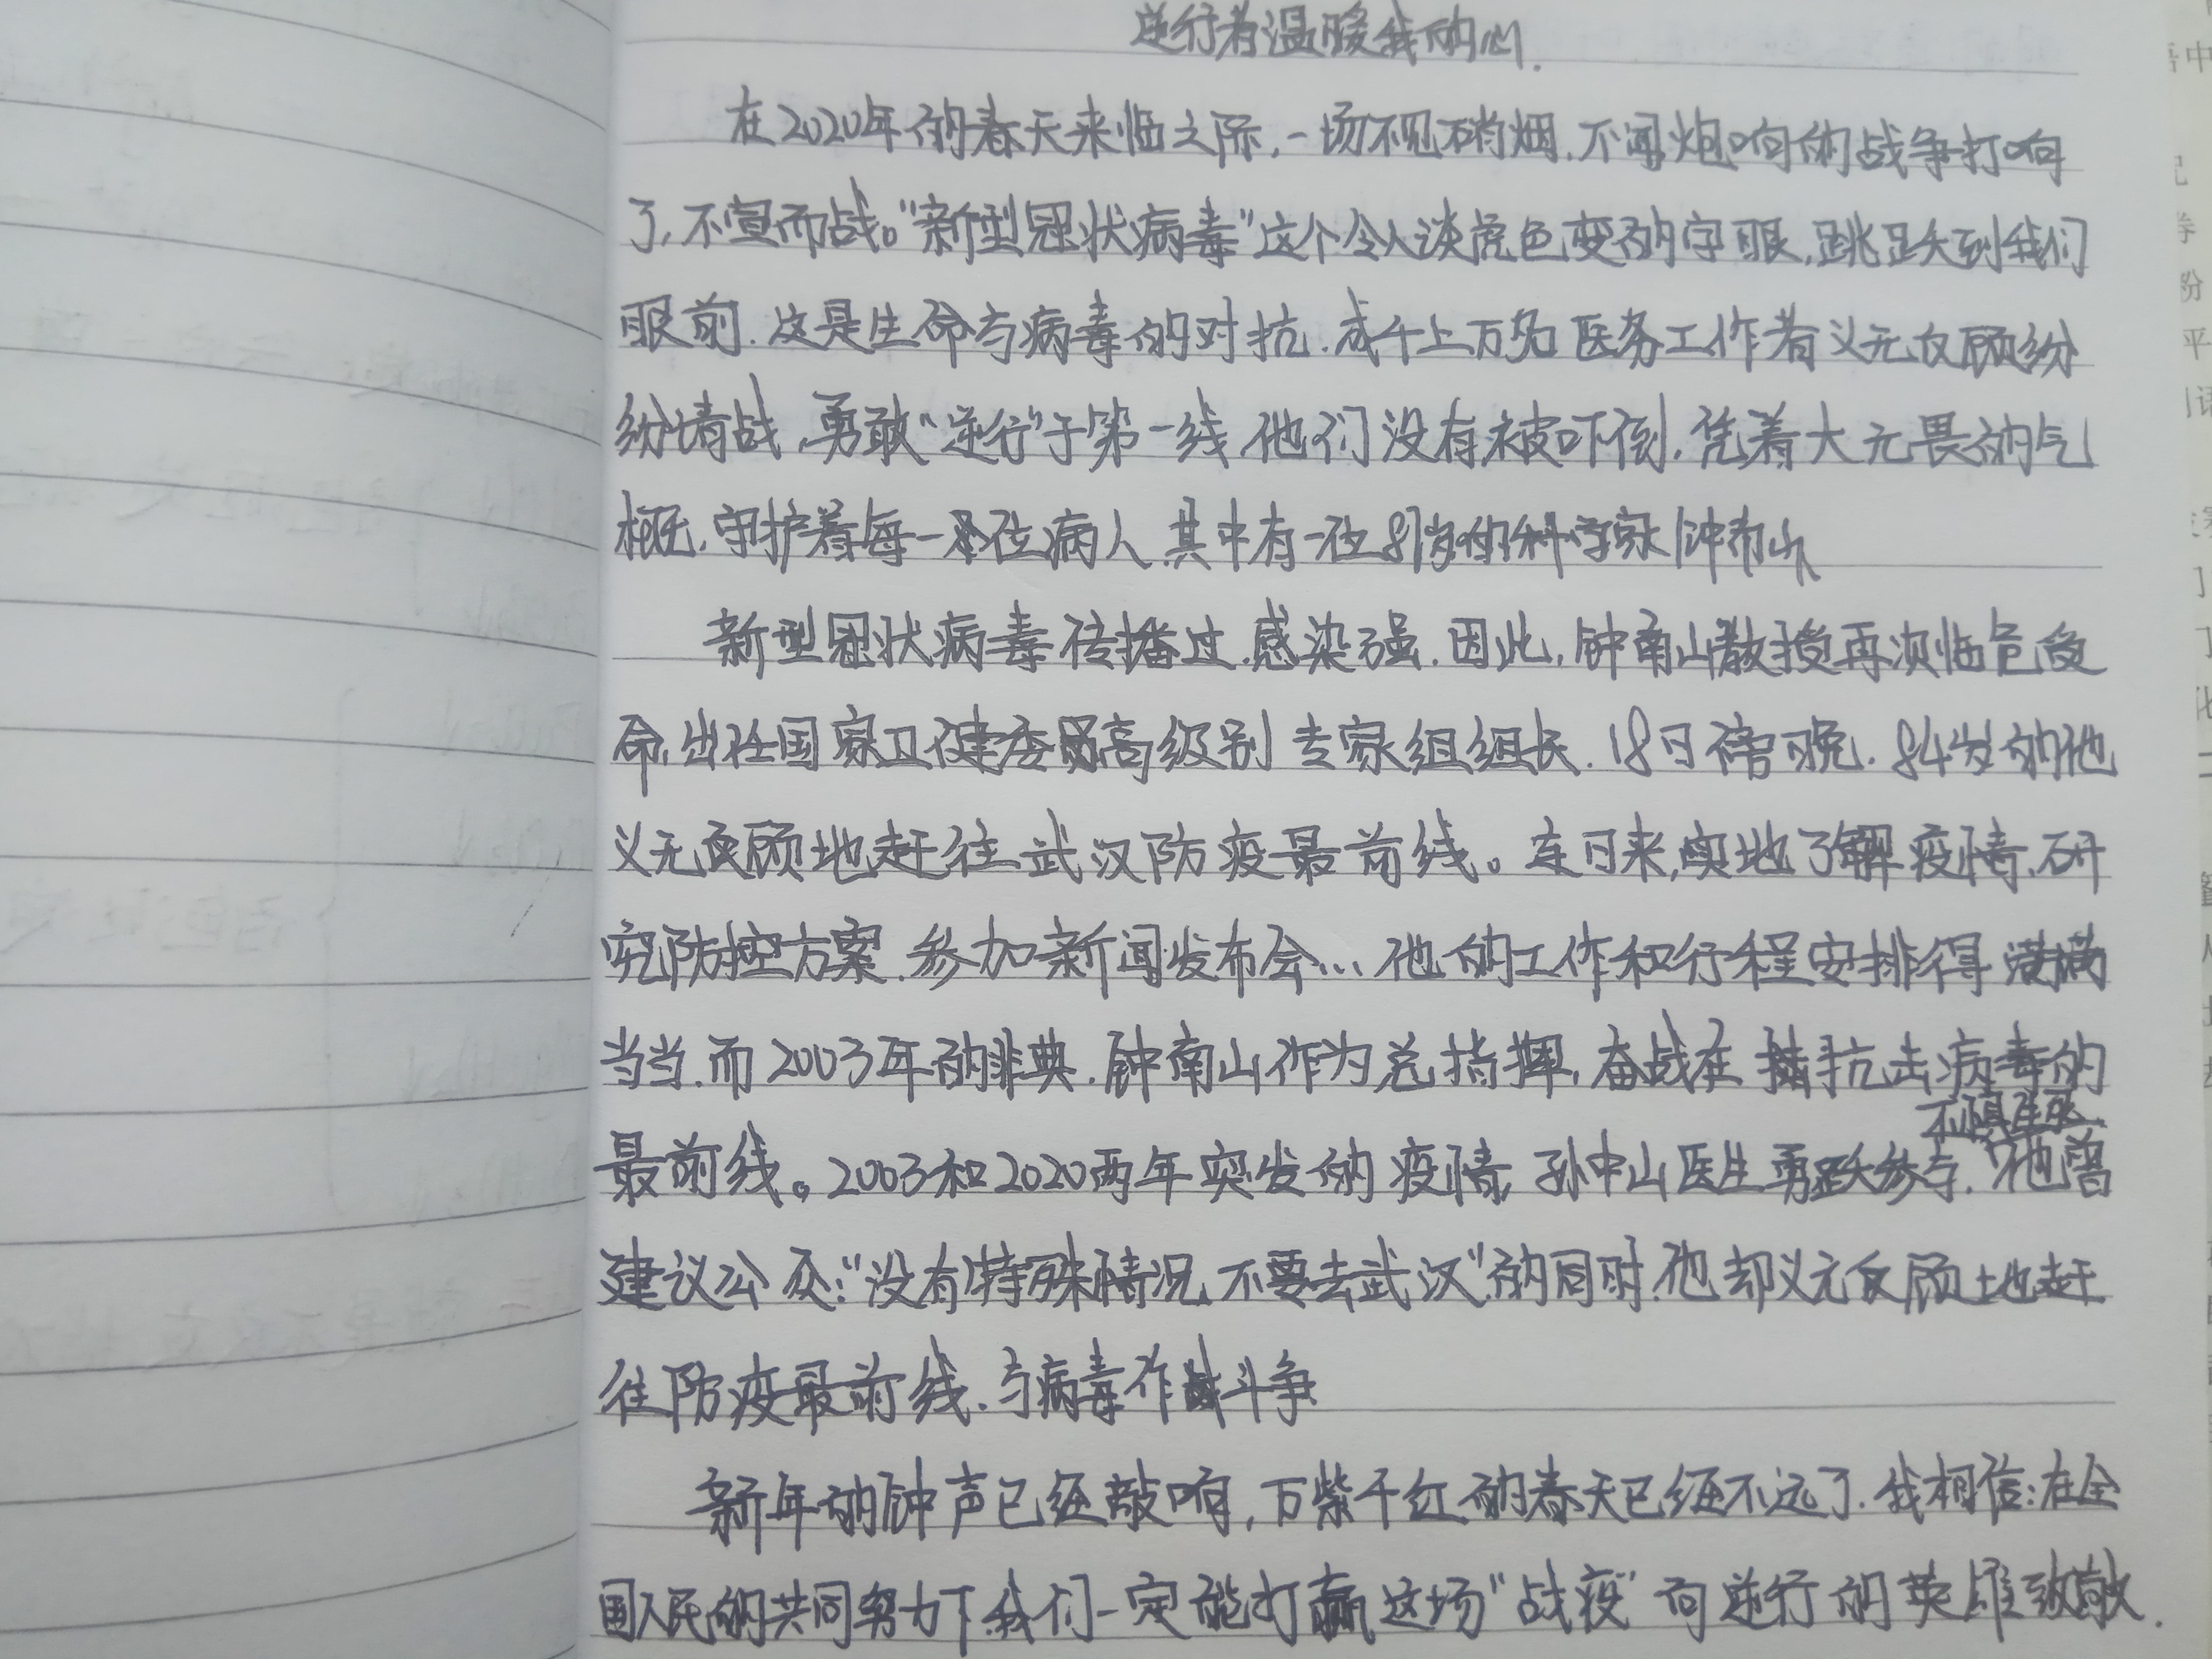 逆行者温暖我的心.
在2020年的春天来临之际,一场不见硝烟,不闻炮响的战争打响
了,不宣而战。"新型冠状病毒"这个令人谈虎色变的字眼,跳跃到我们
眼前.这是生命与病毒的对抗.成千上万名医务工作者义无反顾纷
纷请战,勇敢"逆行"于第一线,他们没有被吓倒,凭着大无畏的气
概,守护着每一位病人.其中有一位81岁的科学家钟南山
新型冠状病毒传播过.感染强.因此,钟南山教授再次临危受
命,出任国家卫健委高级别专家组组长.18日傍晚.84岁的他
义无反顾地赶往武汉防疫最前线。连日来,实地了解疫情,研
究防控方案.参加新闻发布会...他的工作和行程安排得满满
当当.而2003年的非典.钟南山作为总指挥,奋战在抗击病毒的
最前线。2003和2020两年突发的疫情,孙中山医生勇跃参与.不惧生死.他曾
建议公众:"没有特殊情况,不要去武汉"的同时.他却义无反顾地赶
往防疫最前线.与病毒作斗争
新年的钟声已经敲响,万紫千红的春天已经不远了.我相信:在全
国人民的共同努力下,我们一定能打赢这场"战疫"向逆行的英雄致敬.